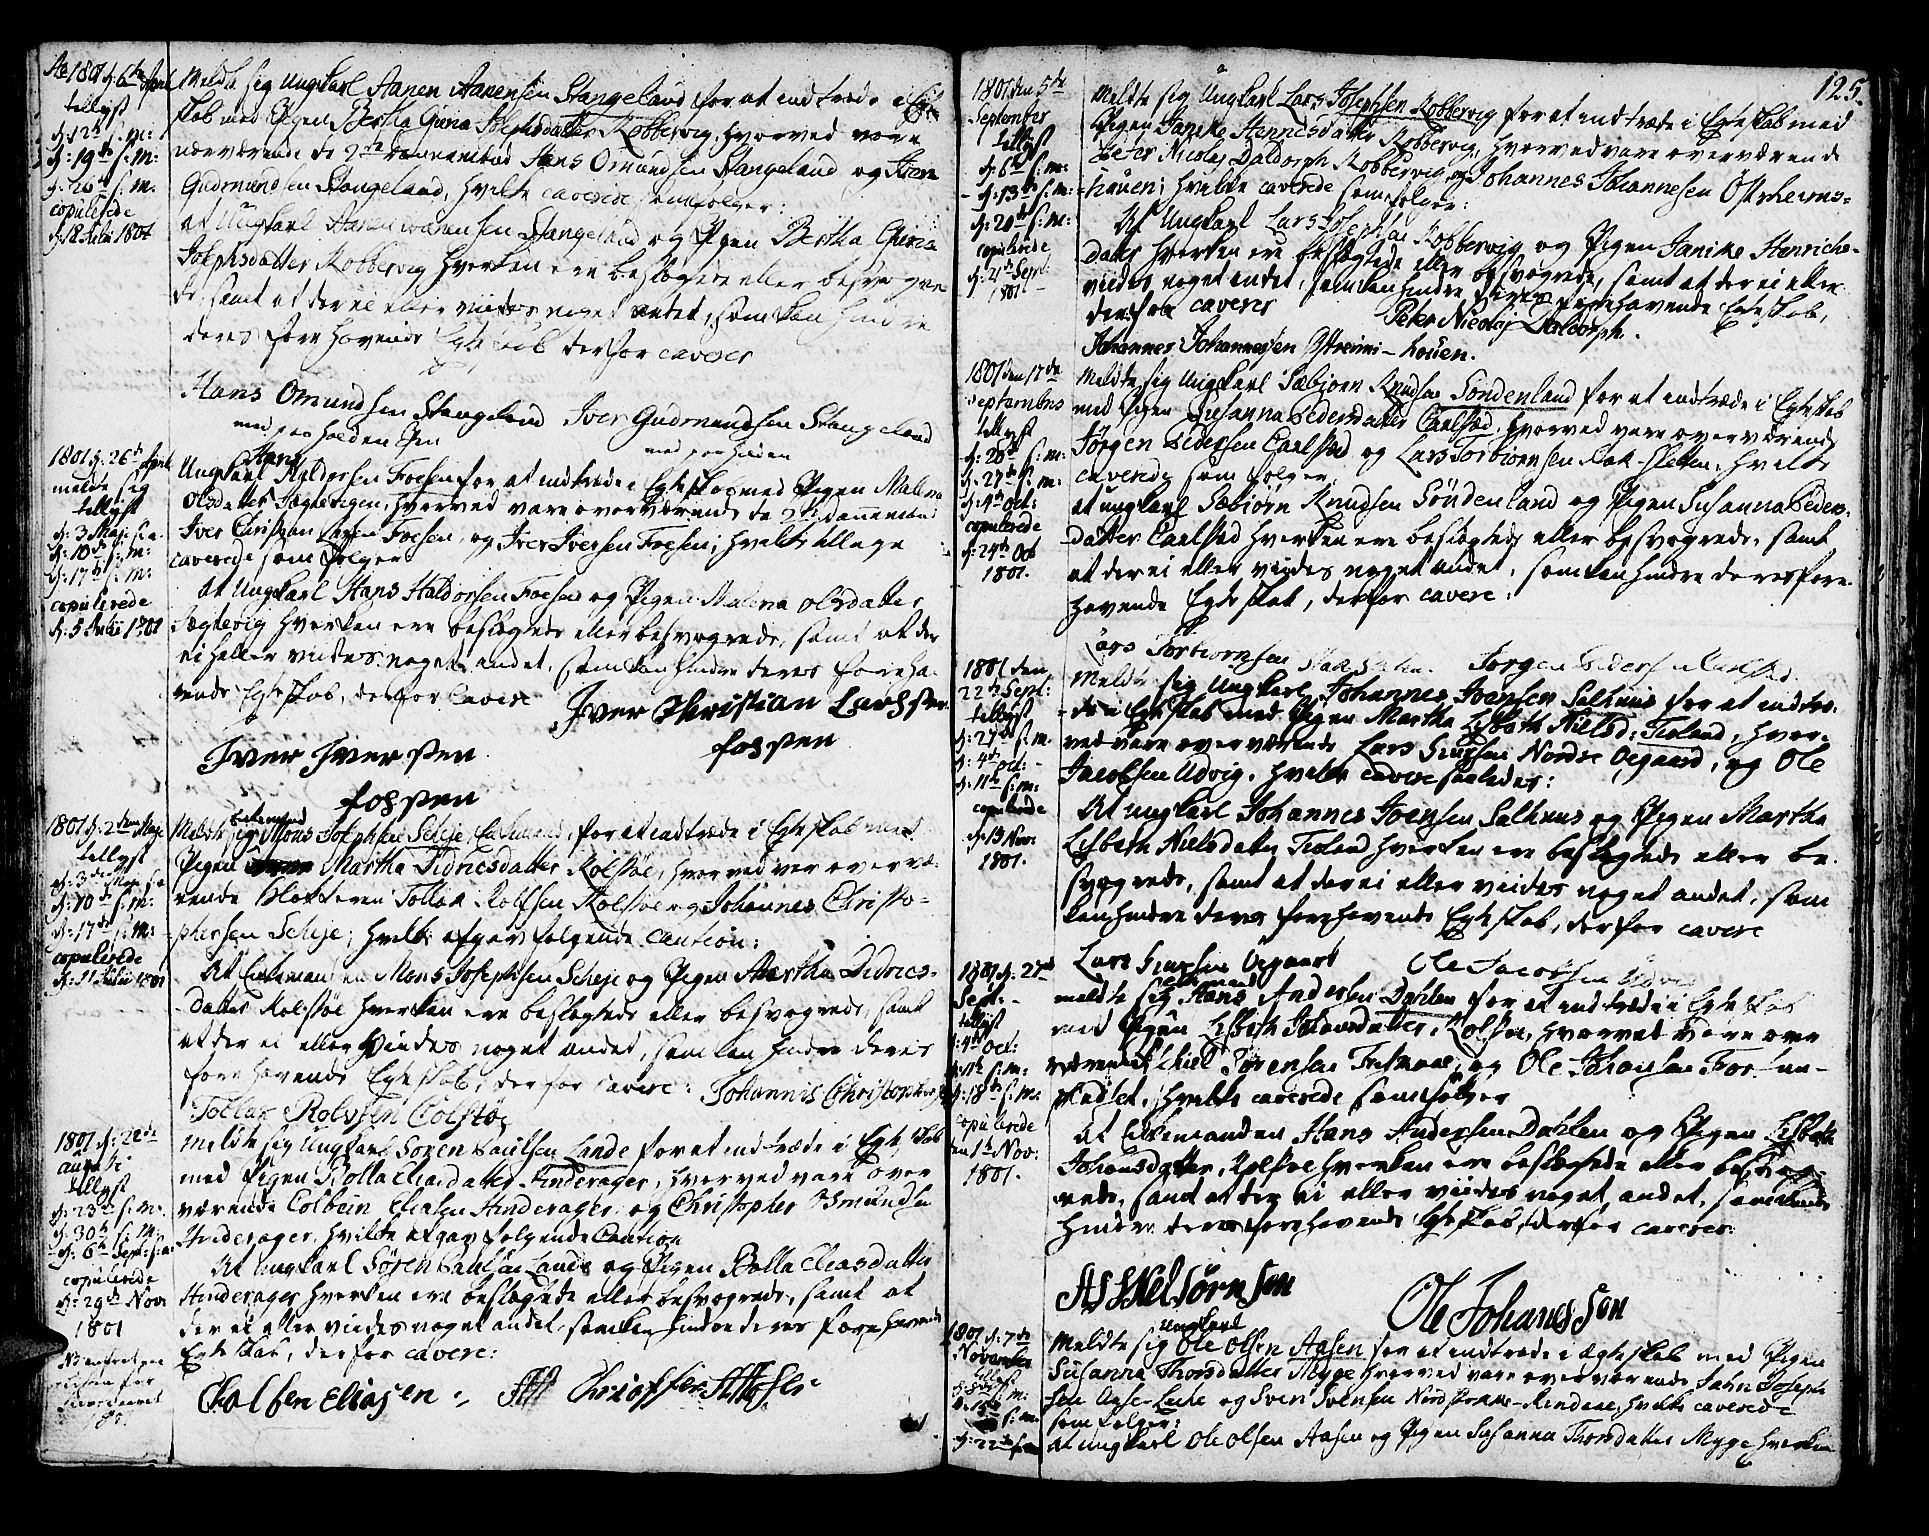 Ao 1801 d: 6te April
tillyst
d: 12te s: m:
d: 19de s: m:
d: 26te s: m:
copulerede
d: 12 Julii 1801
Meldte sig Ungkarl Aanen Aanensen Stangeland for at indtræde i Egte
skab med Pigen Bertha Gjuria Josephsdatter Kobbervig, hvorved vare
nærværende de 2de Dannemænd Hans Omundsen Stangeland og Iver
Gudmundsen Stangeland, hvilke caverede som følger:
at Ungkarl Aanen Aanensen Stangeland og Pigen Bertha Gjuria
Josephsdatter Kobbervig hverken ere beslægtede eller besvogre
de, samt at der ei eller viides noget andet, som kan hindre
deres fore havende Egteskab derfor caverer
Hans Omundsen Stangeland Iver Gudmundsen Stangeland
med paa holden Pen
med paaholden
1801 d: 26te April
melde sig
tillyst
d: 3 Maji s: a:
d: 10de s: m:
d: 17de s: m:
copulerede
d: 5 Julii 1801
Hans
Ungkarl Haldorsen Foesen for at indtræde i Egteskab med Pigen Malena
Olsdatter Sagtevigen, hvorved vare overværende de 2de Dannemænd
Iver Christian Foesen, og Iver Iversen Foesen; hvilke allege
caverede som følger
At Ungkarl Hans Haldorsen Foesen og Pigen Malena Olsdatter
Sagtevig hverken ere beslægtede eller besvogrede, samt at der
ei heller viides noget andet, som kan hindre deres foreha-
vende Egteskab, derfor cavere
Iver Christian Larssen
fossen
Iver Iverssen
fossen
1801 d: 2den Maji
tillyst
d: 3die Maji s: a:
d: 10de s: m:
d: 17de s: m:
copulerede
d: 11 Julii 1801
Meldte sig Mons Josephsen Scheje Enkemand, for at indtræde i Egteskab med
Pigen Martha Didricsdatter Kolstøe, hvorved var overvæ-
rende Tollak Rolfsen Kolstøe og Johannes Christo-
phersen Scheje; hvilke afgav følgende Caution:
At Enkemanden Mons Josephsen Scheje og Pigen Martha Didrics-
datter Kolstøe hverken ere beslægtede eller besvogrede, samt
at der ei eller viides noget andet, som kan hindre deres
forehavende Egteskab, derfor cavere: Johannis Christophersen
Tollax Rolvsen Colstø
1801 d: 22de
augusti
tillyst
d: 23de s: m:
d: 30te s: m:
d: 6te Sept: s: a:
copulerede
d: 29de Nov
1801
Meldte sig Ungkarl Søren Paulsen Lande for at indtræde i Egteskab
med Pigen Bolla Eliasdatter Hinderager, hvorved vare over
værende Colbein Eliasen Hinderager og Christopher Asmundsen
Hinderager, hvilke afgav følgende Caution
At Ungkarl Søren Paulsen Lande og Pigen Bolla Eliasdatter
Hinderager hverken ere beslægtede eller besvogrede, samt at
der ei eller viides noget andet, som kan hindre deres forehavende
Egteskab, derfor cavere:
Cholben Eliasen
125.
1801 den 5te
September
tillyst
d: 6te s: m:
d: 13de s: m:
d: 20de s: m:
copulerede
d: 21de Sept:
1801
Meldte sig Ungkarl Lars Josephsen Kobbervig for at indtræde i Egteskab med
Pigen Janike Henricsdatter Kobbervig, hvorved vare overværende
Peter Nicolaj Daldorph Kobbervig og Johannes Johannesen Østreims-
houen; hvilke caverede som følger:
At Ungkarl Lars Josephsen Kobbervig og Pigen Janike Henrichs-
datter hverken ere beslægtede eller besvogrede, samt at der ei eller
viides noget andet, som kan hindre deres forehavende Egteskab,
derfor caverer
Peter Nicolaj Daldorph.
Johannes Johannesen Østreims-houen.
1801 den 17de
Septembris
tillyst
d: 20de s: m:
d: 27de s: m:
d: 4de Oct:
copulerede
d: 24de Oct
1801.
Meldte sig Ungkarl Sæbjørn Knudsen Søndenland for at indtræde i Egteskab
med Pigen Susanna Pedersdatter Carlstad, hvorved vare overværende
Jørgen Pedersen Carlstad og Lars Torbiørnsen Sletten; hvilke
caverede som følger
at ungkarl Sæbiørn Knudsen Søndenland og Pigen Susanna Peders-
datter Carlstad hverken ere beslægtede eller besvogrede, samt
at der ei eller viides noget andet, som kan hindre deres fore-
havende Egteskab, derfor cavere:
Lars Torbiørnsen Jørgen Pedersen
1801 den
22de Sept:
tillyst
d: 27de s: m.
d: 4de Oct:
d: 11te s: m:
copulerede
d: 13 Nov:
1801.
Meldte sig Ungkarl Johannes Joensen Salhuus for at indtræ-
de i Egteskab med Pigen Martha Lisbeth Nielsd: Tioland, hvor-
ved vare overværende Lars Nordre Vegaard, og Ole
Jacobsen Udvig, hvilke cavere saaledes:
At ungkarl Johannes Joensen Salhuus og Pigen Martha
Lisbeth Nielsdatter Tioland hverken ere beslægtede eller be-
svogrede, samt at der ei eller viides noget andet, som
kan hindre deres forehavende Egteskab, derfor cavere
Lars Vegaart Ole Jacobsen Udvig
1801 d: 27de
Sept:
tillyst
d: 4de Oct:
d: 11te s: m:
d: 18de s: m:
copulerede
den 1te Nov:
1801.
Enkemand
meldte sig Hans Andersen Dahlen for at indtræde i Egteskab
med Pigen Lisbeth Johansdatter, Kolstøe, hvorved vare over
værende Schiel Sørensen, og Ole Johansen For
hvilke caverede som følger
At Enkemanden Hans Andersen Dahlen og Pigen Lisbeth
Johansdatter, Kolstøe hverken ere beslægtede eller besvog-
rede, samt at der ei eller viides noget andet, som kunde
hindre deres forehavende Egteskab, derfor caverer:
Askiel sørnsen
Ole Johanessen
1801 d: 7de
November
tillyst
d: 8de s: m:
d: 15de s: m:
d: 22de s: m:
Ungkarl
Meldte sig Ole Olsen Aasen for at indtræde i Ægteskab med Pigen
Susanna Thorsdatter Myge hvorved vare overværende John Joseph-
sen og Sven Svensen, hvilke caverede
som følger:
at ungkarl Ole Olsen Aasen og Pigen Susanna Thorsdatter Myge hverken